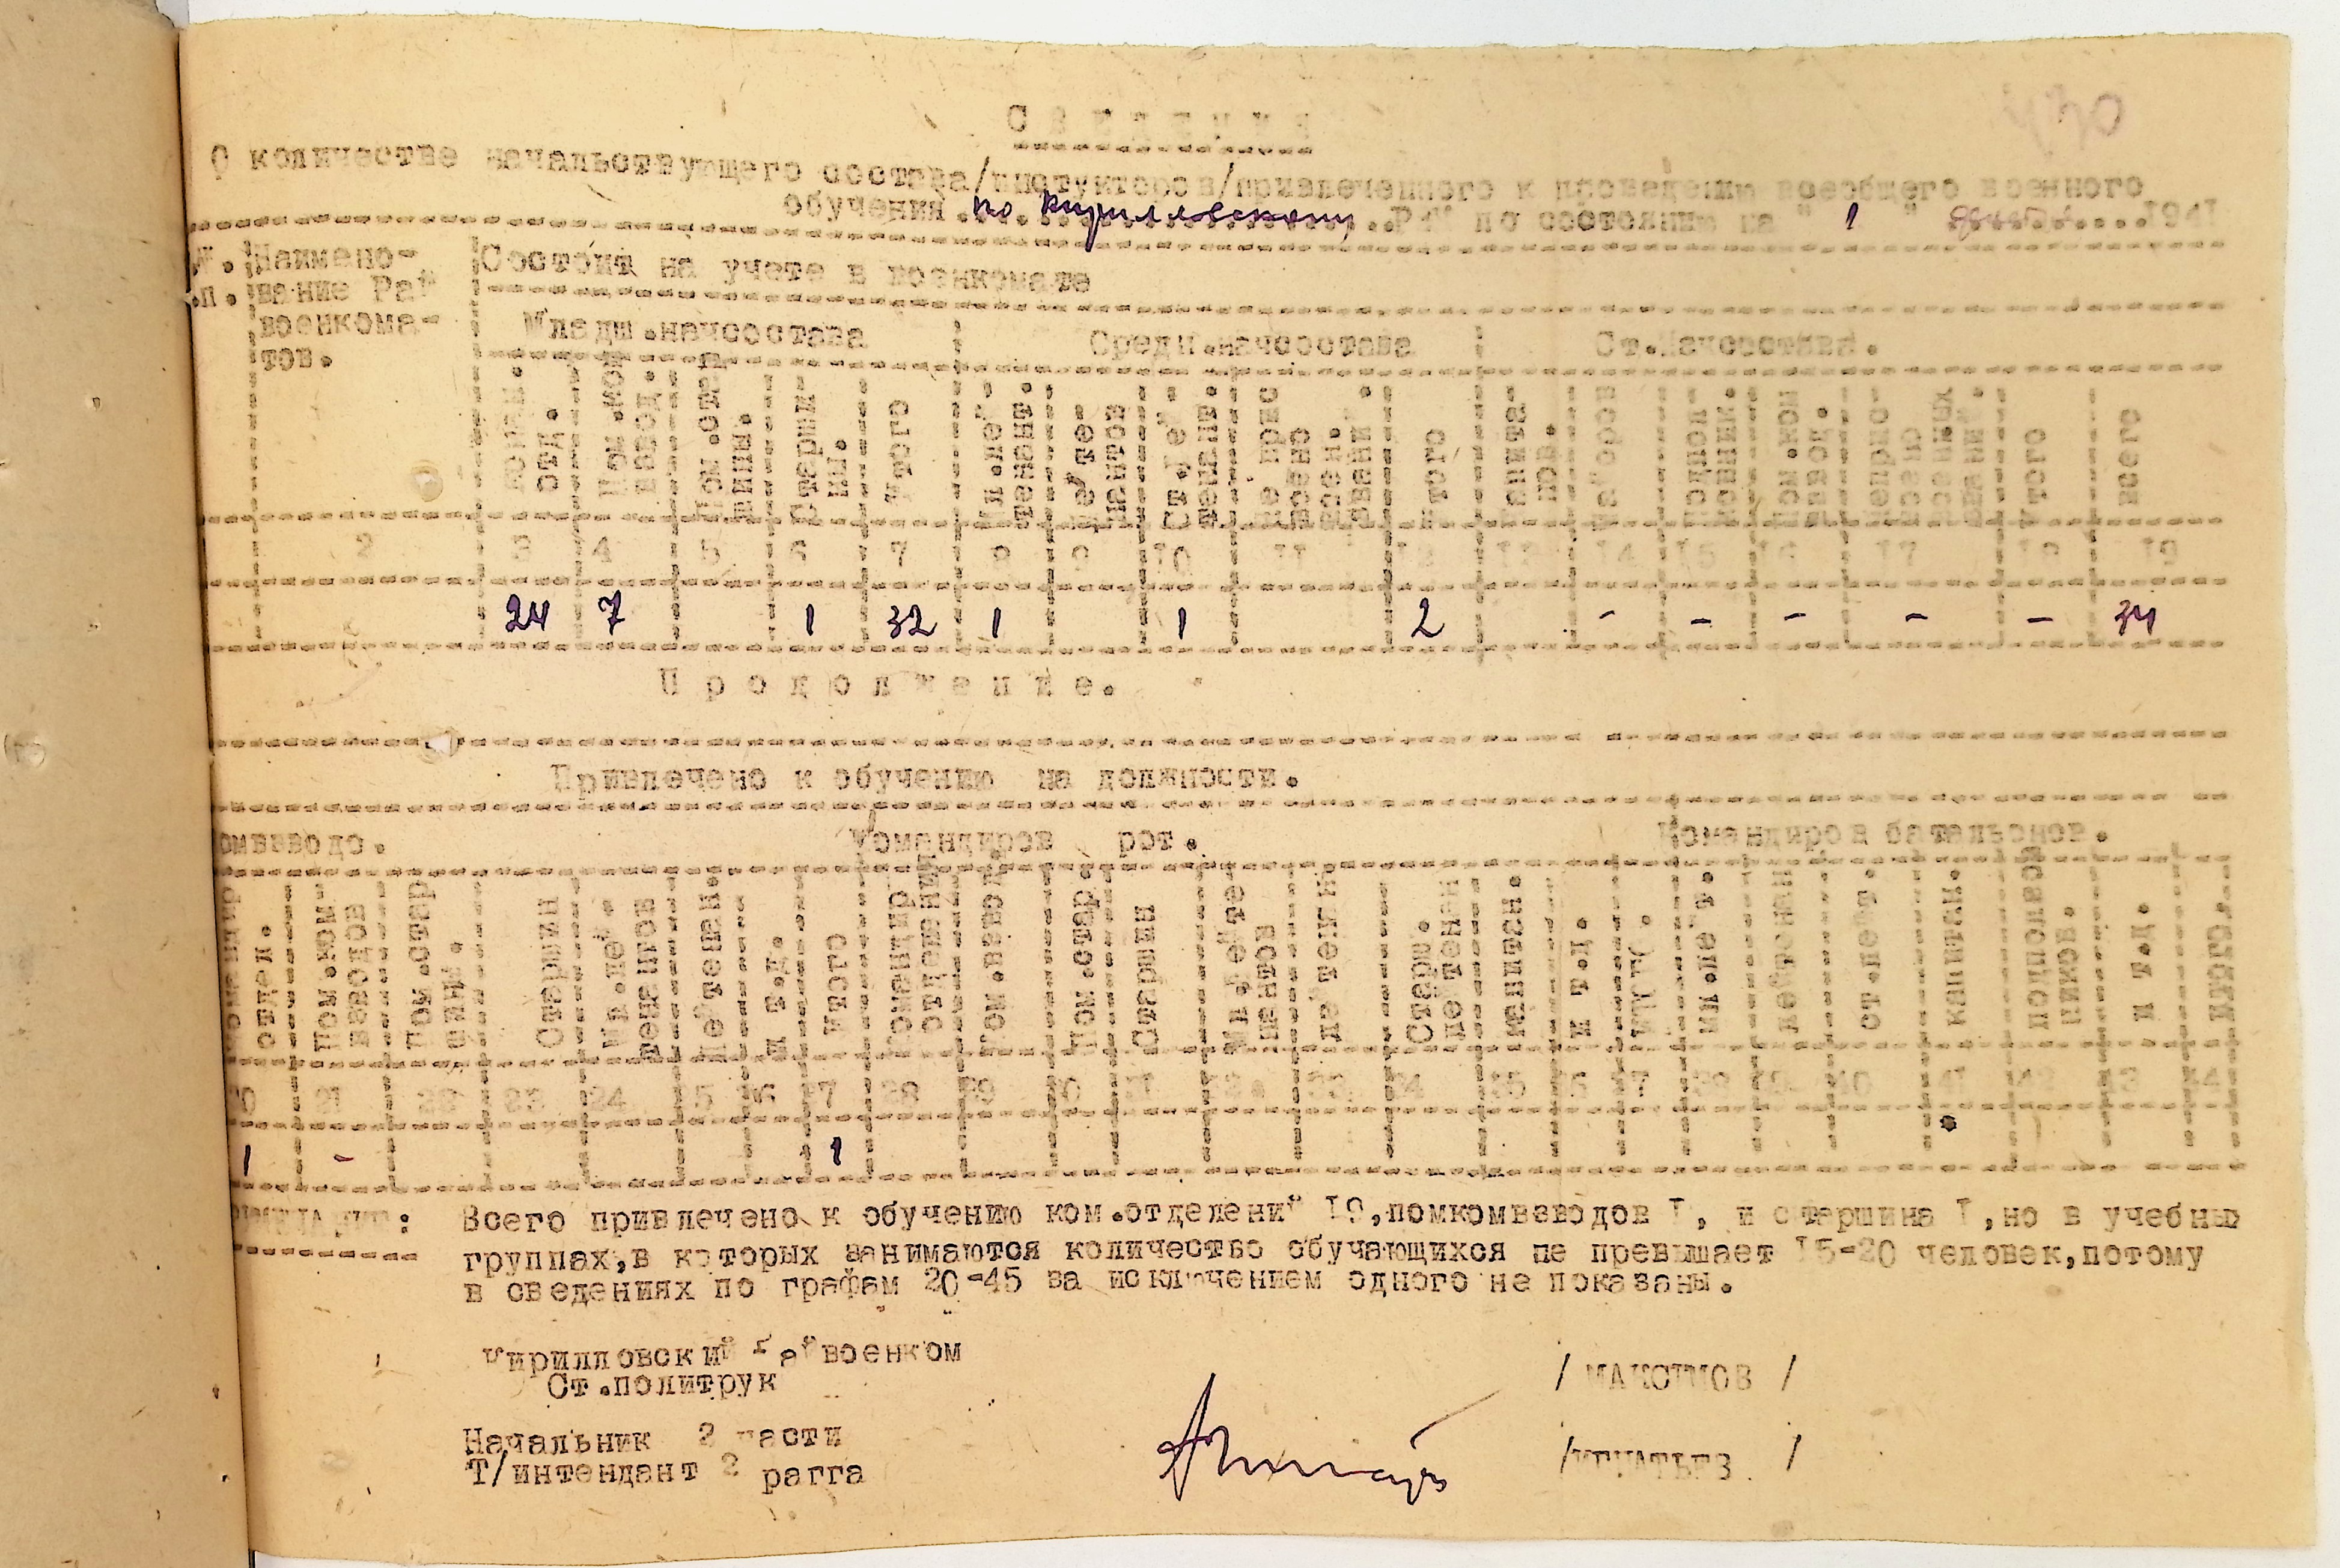 С в е д е н и я
О количестве начальствующего состава/инструкторов/привлеченного к проведению всеобщего военного
обучения по Кирилловскому РВК по состоянию на " 1 " 1941
Наимено-
вание
военкома-
тов.
Состоит на учете в военкомате
Младш.начсостава Средн.начсостава Ст.Начсостава.
отд. Пом.ком взвод. Пом.стар шины. Старши ны. Итого Мл.лей- тенант. Лейте- нантов Ст.лей тенантов. Итого Капита- нов. Майоров Итого Всего
2 3 4 5 6 7 8 9 10 11 12 13 14 15 16 17 18 19
24 7 1 32 1 1 2 - - - - - 34
П р о д о л ж е н и е.
Привлечено к обучению на должности.
омвзводо. Командиров рот. Командиров батальонов.
отделен. Пом.ком взводов Пом.стар шин. Старшин Мл.лей- тенантов Лейтенан. и т.д. Итого Командир отделений Пом.взвод. Пом.стар. Старшин Мл.лейте нантов лейтенан Старш. лейтенан капитан. и т.д. мл.лейт. лейтенан ст.лейт. капитан. подполков ников. и т.д. итого.
0 21 22 23 24 5 6 7 28 29 30 31 32. 33 34 35 36 7 38 39 40 41 42 43 44
1 - 1
: Всего привлечено к обучению ком.отделений 19,помкомвзводов I, и старшина I,но в учебных
группах,в которых занимаются количество обучающихся не превышает 15-20 человек,потому
в сведениях по графам 20-45 за исключением одного не показаны.
Кирилловский Райвоенком
Ст.политрук / МАКСИМОВ /
Начальник 2 части
Т/интендант 2 рагга /ИГНАТЬЕВ /